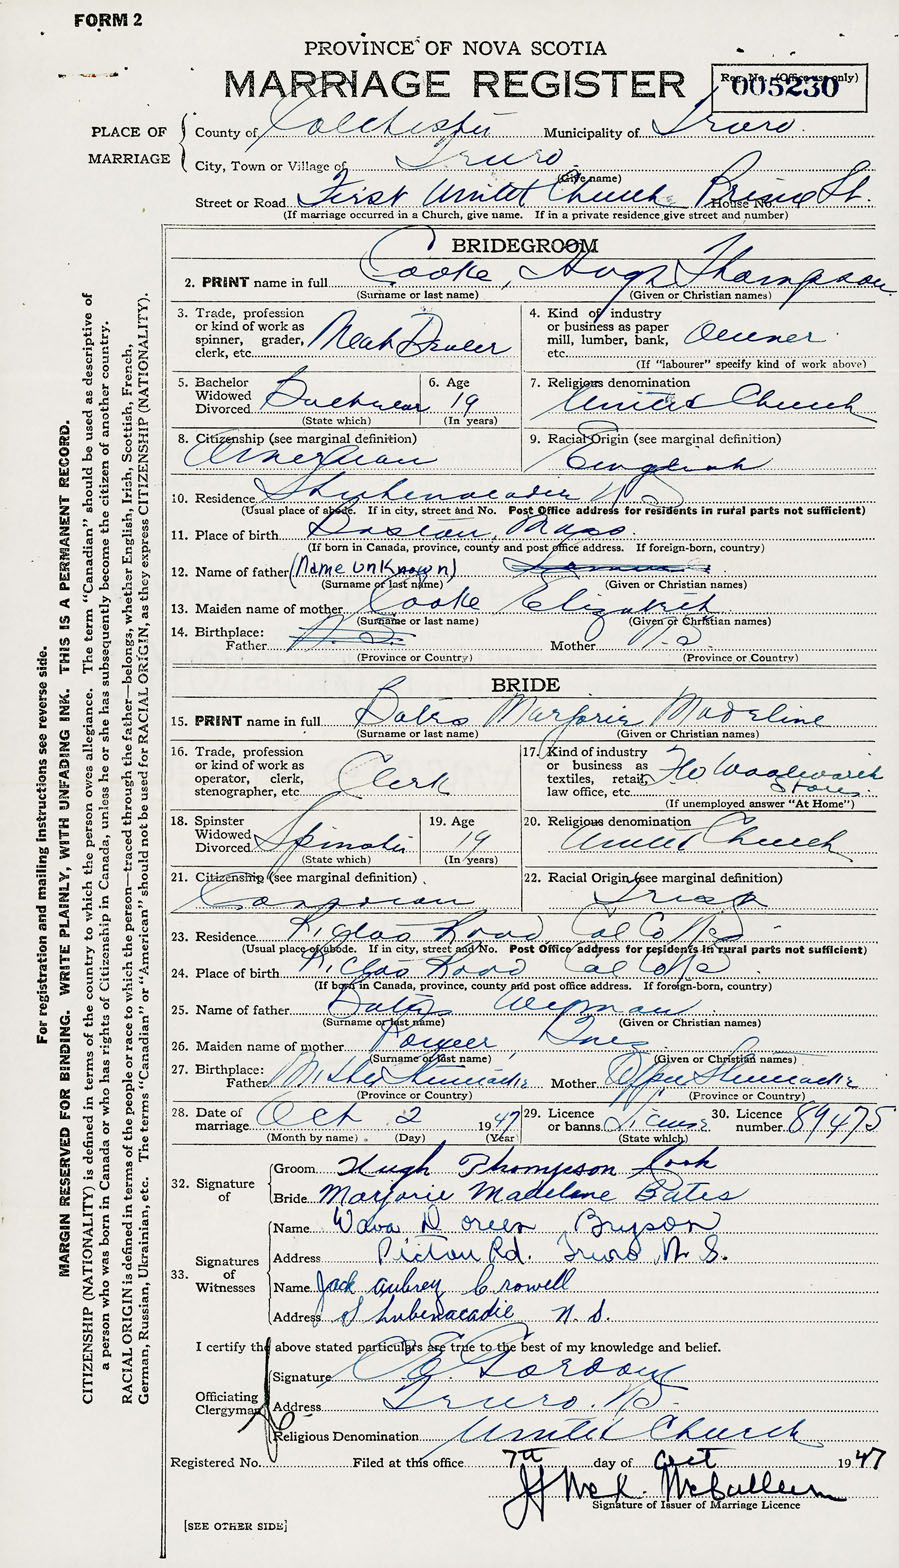 FORM 2
PROVINCE OF NOVA SCOTIA
MARRIAGE REGISTER
Reg. No. (Office use only)
005230
PLACE OF MARRIAGE
County of Colchester Municipality of Truro.
City, Town or Village of Truro
(Give name)
Street or Road First United Church Prince St. House No.
(If marriage occurred in a Church, give name. If in a private residence give street and number)
BRIDEGROOM
2. PRINT name in full Cooke, Hugh Thompson
(Surname or last name) (Given or Christian names)
3. Trade, profession or kind of work as spinner, grader, clerk, etc. Meat Dealer
4. Kind of industry or business as paper mill, lumber, bank, etc.
(If "labourer" specify kind of work above)
5. Bachelor Widowed Divorced Bachelor
(State which)
6. Age 19
(In years)
7. Religious denomination United Church
8. Citizenship (see marginal definition) American
9. Racial Origin (see marginal definition) English
10. Residence Shubenacadie N S
(Usual place of abode. If in city, street and No. Post Office address for residents in rural parts not sufficient)
11. Place of birth Boston, Mass.
(If born in Canada, province, county and post office address. If foreign-born, country)
12. Name of father (Name unknown)
(Surname or last name) (Given or Christian names)
13. Maiden name of mother Cooke Elizabeth
(Surname or last name) (Given or Christian names)
14. Birthplace: Father N.S. Mother N.S
(Province or Country) (Province or Country)
BRIDE
15. PRINT name in full Bates Marjorie Madeline
(Surname or last name) (Given or Christian names)
16. Trade, profession or kind of work as operator, clerk, stenographer, etc. Clerk
17. Kind of industry or business as textiles, retail, law office, etc. Woolworth Stores.
(If unemployed answer "At Home")
18. Spinster Widowed Divorced Spinster
(State which)
19. Age 19
(In years)
20. Religious denomination United Church
21. Citizenship (see marginal definition) Canadian
22. Racial Origin (see marginal definition) Irish
23. Residence Road Col Co N S
(Usual place of abode. If in city, street and No. Post Office address for residents in rural parts not sufficient)
24. Place of birth Road Col Co N S
(If born in Canada, province, county and post office address. If foreign-born, country)
25. Name of father Bates
(Surname or last name) (Given or Christian names)
26. Maiden name of mother Inez
(Surname or last name) (Given or Christian names)
27. Birthplace: Father Stewiacke Mother Upper Stewiacke
(Province or Country) (Province or Country)
28. Date of marriage Oct 2 1947
(Month by name) (Day) (Year)
29. Licence or banns License
(State which)
30. Licence number 89475
32. Signature of
Groom Hugh Thompson Cook
Bride Marjorie Madelene Bates
33. Signatures of Witnesses
Name Wava Doreen Bryson
Address Pictou Rd. Truro N. S.
Name Jack Aubrey Crowell
Address Shubenacadie N. S.
I certify the above stated particulars are true to the best of my knowledge and belief.
Officiating Clergyman
Signature Gordon
Address Truro. N.S.
Religious Denomination United Church
Registered No. Filed at this office 7th day of Oct 1947
McCullum
Signature of Issuer of Marriage Licence
[SEE OTHER SIDE]
For registration and mailing instructions see reverse side.
MARGIN RESERVED FOR BINDING. WRITE PLAINLY, WITH UNFADING INK. THIS IS A PERMANENT RECORD.
CITIZENSHIP (NATIONALITY) is defined in terms of the country to which the person owes allegiance. The term "Canadian" should be used as descriptive of
a person who was born in Canada or who has rights of Citizenship in Canada, unless he or she has subsequently become the citizen of another country.
RACIAL ORIGIN is defined in terms of the people or race to which the person—traced through the father—belongs, whether English, Irish, Scottish, French,
German, Russian, Ukrainian, etc. The terms "Canadian" or "American" should not be used for RACIAL ORIGIN, as they express CITIZENSHIP (NATIONALITY).